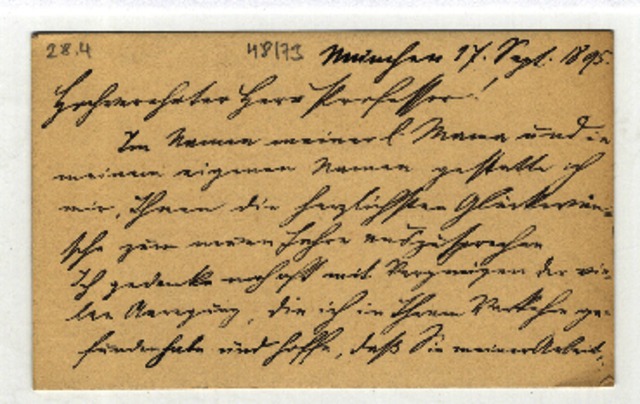 28.4 48/73 München 17. Sept. 1895.
Hochverehrter Herr Professor!
Im Namen meiner l. Mama und in
meinem eigenen Namen gestatte ich
mir, Ihnen die herzlichsten Glückwün-
sche zum neuen Jahre auszusprechen
Ich gedenke noch oft mit Vergnügen der vie-
len Anregung, die ich in Ihrem Verkehr ge-
funden habe und hoffe, daß Sie meiner Arbeit,